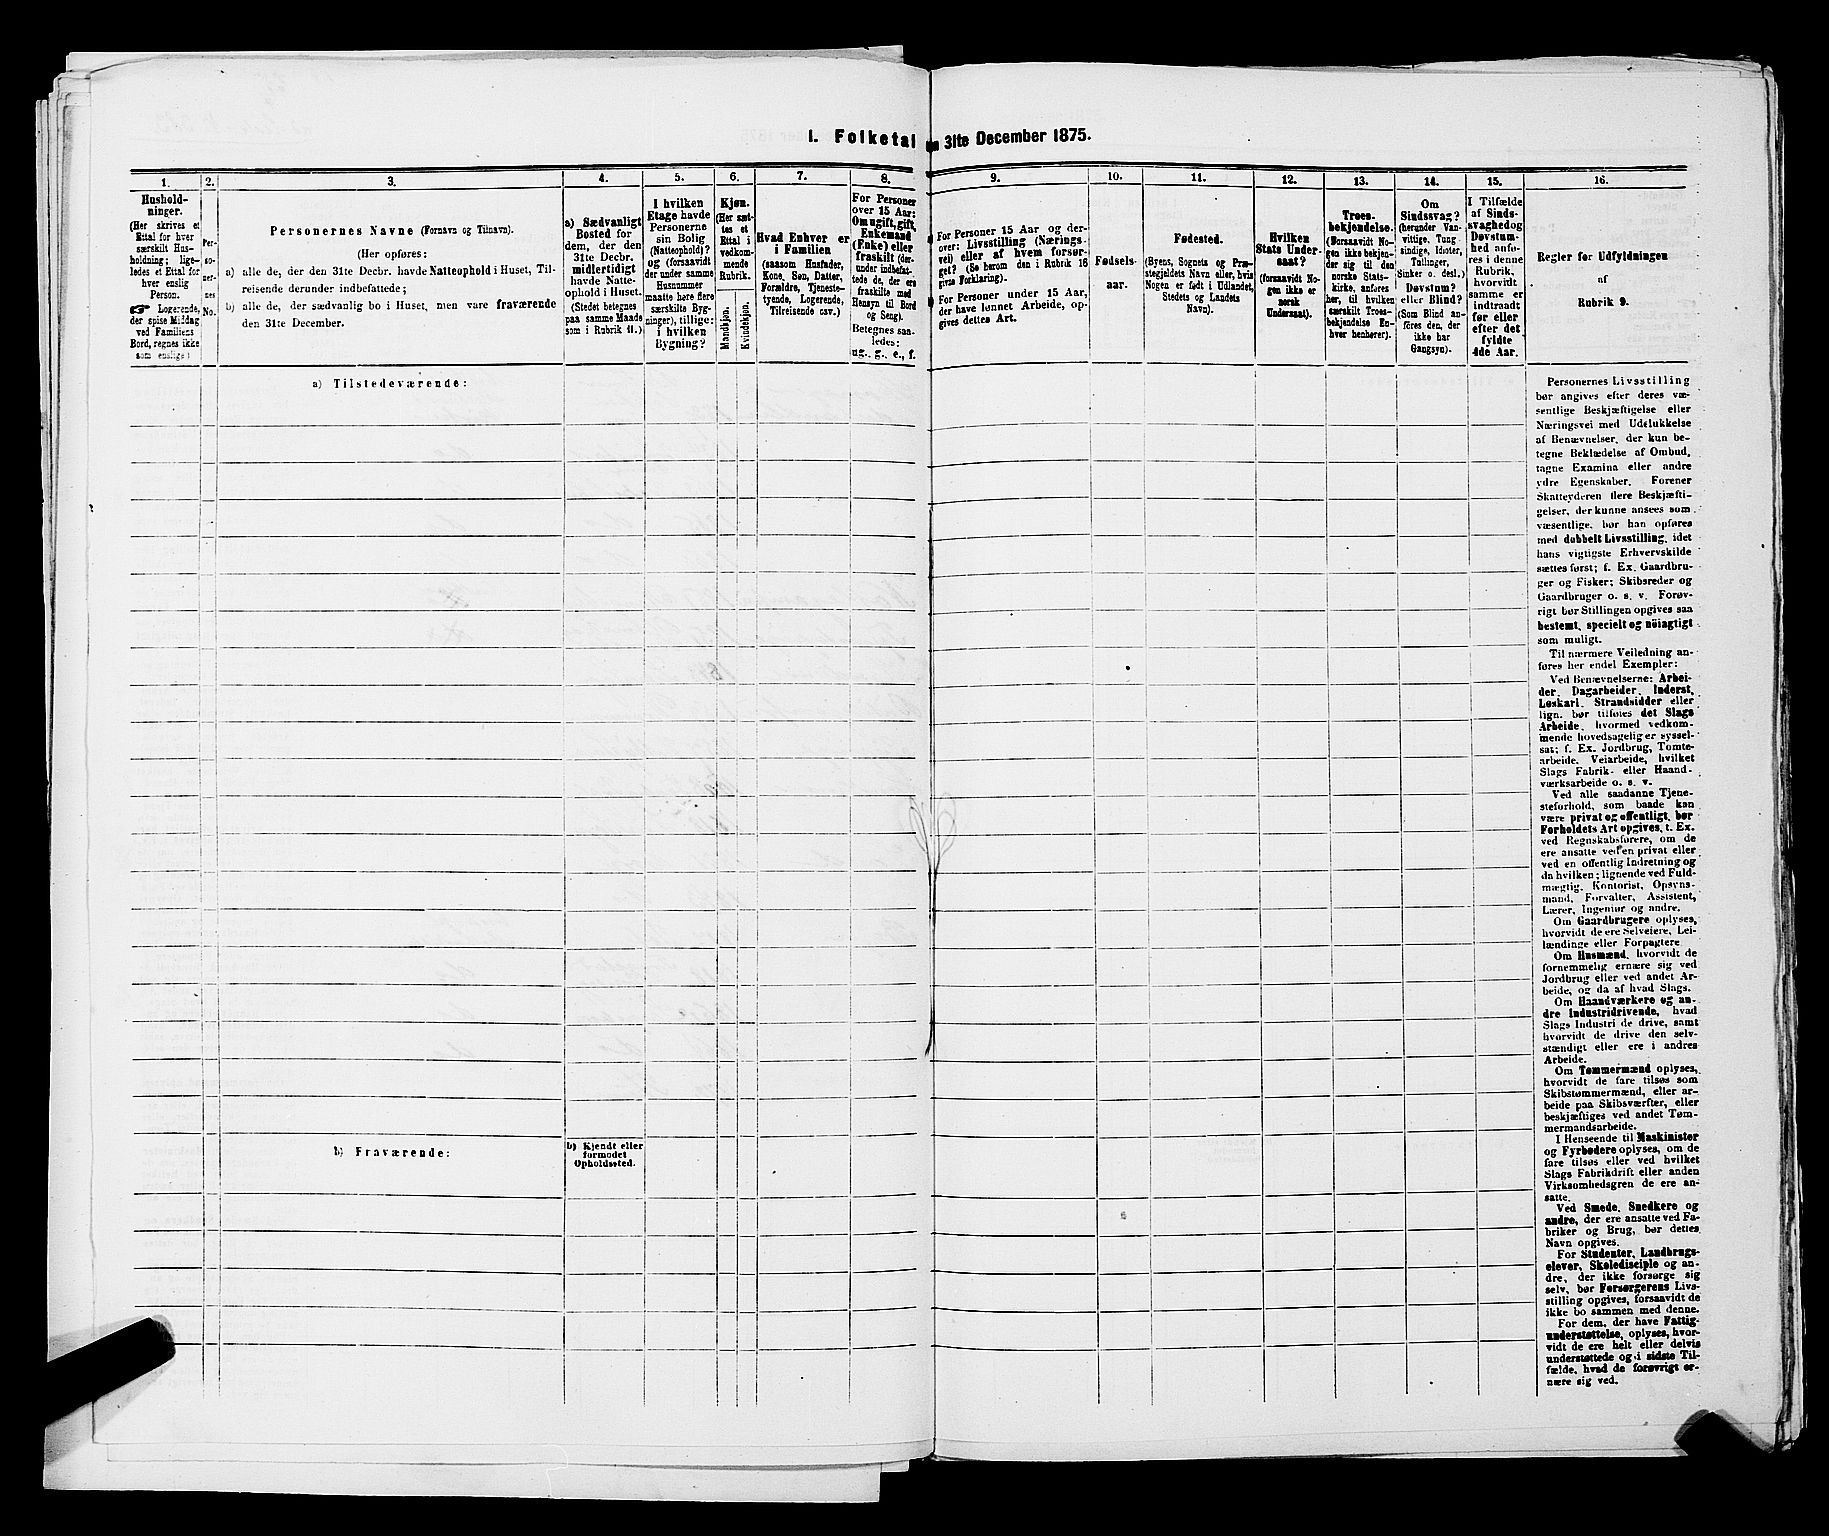 I. Folketal
3lte December 1875.
1.
Hushold-
ninger.
(Her skrives et
Ettal for hver
særskilt Hus-
holdning; lige-
ledes et Ettal for
hver enslig
Person.
☞ Logerende,
der spise Middag
ved Familiens
Bord, regnes ikke
som enslige)
2.
Per-
so-
ner-
nes
No.
3.
Personernes Navne (Fornavn og Tilnavn).
(Her opføres:
a) alle de, der den 31te Decbr. havde Natteophold i Huset, Til-
reisende derunder indbefattede;
b) alle de, der sædvanlig bo i Huset, men vare fraværende
den 31te December.
4.
a) Sædvanligt
Bosted for
dem, der den
31te Decbr.
midlertidigt
havde Natte-
ophold i Huset.
(Stedet betegnes
paa samme Maade
som i Rubrik 11.)
5.
I hvilken
Etage havde
Personerne
sin Bolig
(Natteophold)?
og (forsaavidt
der under samme
Husnummer
maatte høre flere
særskilte Byg-
ninger), tillige:
i hvilken
Bygning?
6.
Kjøn.
(Her sæt-
tes et
Ettal i
vedkom-
mende
Rubrik.
Mandkjøn.
Kvindekjøn.
7.
Hvad Enhver er
i Familien
(saasom Husfader,
Kone, Søn, Datter,
Forældre, Tjeneste-
tyende, Logerende,
Tilreisende osv.)
8.
For Personer
over 15 Aar:
Om ugift, gift,
Enkemand
(Enke) eller
fraskilt (der-
under indbefat-
tede de, der ere
fraskilte med
Hensyn til Bord
og Seng).
Betegnes saa-
ledes:
ug., g., e., f.
9.
For Personer 15 Aar og der-
over: Livsstilling (Nærings-
vei) eller af hvem forsør-
get? (Se herom den i Rubrik 16
givne Forklaring).
For Personer under 15 Aar,
der have lønnet Arbeide, op-
gives dettes Art.
10.
Fødsels-
aar.
11.
Fødested.
(Byens, Sognets og Præ-
stegjeldets Navn eller, hvis
Nogen er født i Udlandet,
Stedets og Landets
Navn).
12.
Hvilken
Stats Under-
saat?
(forsaavidt No-
gen ikke er
norsk
Undersaat).
13.
Troes-
bekjendelse.
(Forsaavidt No-
gen ikke bekjen-
der sig til den
norske Stats-
kirke, anføres
her, til hvilken
særskilt Troes-
bekjendelse En-
hver henhører).
14.
Om
Sindssvag?
(herunder Van-
vittige, Tung-
sindige, Idioter,
Tullinger,
Sinker o. desl.)
Døvstum?
eller Blind?
(Som Blind an-
føres den, der
ikke har
Gangsyn).
15.
I Tilfælde
af Sinds-
svaghed og
Døvstum-
hed anfø-
res i denne
Rubrik,
hvorvidt
samme er
indtraadt
før eller
efter det
fyldte
4de Aar.
16.
Regler for Udfyldningen
af
Rubrik 9.
a) Tilstedeværende:
b) Fraværende:
b) Kjendt eller
formodet
Opholdssted.
Personernes Livsstilling
bør angives efter deres væ-
sentlige Beskjæftigelse eller
Næringsvei med Udelukkelse
af Benævnelser, der kun be-
tegne Beklædelse af Ombud,
tagne Examina eller andre
ydre Egenskaber. Forener
Skatteyderen flere Beskjæfti-
gelser, der kunne ansees som
væsentlige, bør han opføres
med dobbelt Livsstilling, idet
hans vigtigste Erhvervskilde
sættes først; f. Ex. Gaardbru-
ger og Fisker; Skibsreder og
Gaardbruger o. s. v. Forøv-
rigt bør Stillingen opgives saa
bestemt, specielt og nøiagtigt
som muligt.
Til nærmere Veiledning an-
føres her endel Exempler:
Ved Benævnelserne: Arbei-
der, Dagarbeider, Inderst,
Løskarl, Strandsidder eller
lign. bør tilføies det Slags
Arbeide, hvormed vedkom-
mende hovedsagelig er syssel-
sat; f. Ex. Jordbrug, Tomte-
arbeide, Veiarbeide, hvilket
Slags Fabrik- eller Haand-
værksarbeide o. s. v.
Ved alle saadanne Tjene-
steforhold, som baade kan
være privat og offentligt, bør
Forholdets Art opgives, t. Ex.
ved Regnskabsførere, om de
ere ansatte ved en privat eller
ved en offentlig Indretning og
da hvilken; lignende ved Fuld-
mægtig, Kontorist, Opsyns-
mand, Forvalter, Assistent,
Lærer, Ingeniør og andre.
Om Gaardbrugere oplyses,
hvorvidt de ere Selveiere, Lei-
lændinge eller Forpagtere
Om Husmænd, hvorvidt de
fornemmelig ernære sig ved
Jordbrug eller ved andet Ar-
beide, og da af hvad Slags.
Om Haandværkere og an-
dre Industridrivende, hvad
Slags Industri de drive, samt
hvorvidt de drive den selv-
stændigt eller ere i andres
Arbeide.
Om Tømmermænd oplyses,
hvorvidt de fare tilsøs som
Skibstømmermænd, eller ar-
beide paa Skibsværfter, eller
beskjæftiges ved andet Tøm-
mermandsarbeide.
I Henseende til Maskinister
og Fyrbødere oplyses, om de
fare tilsøs eller ved hvilket
Slags Fabrikdrift eller anden
Virksomhedsgren de ere an-
satte.
Ved Smede, Snedkere og
andre, der ere ansatte ved Fa-
briker og Brug, bør dettes
Navn opgives.
For Studenter, Landbrugs-
elever, Skoledisciple og an-
dre, der ikke forsørge sig
selv, bør Forsørgerens Livs-
stilling opgives, forsaavidt de
ikke bo sammen med denne.
For dem, der have Fattig-
understøttelse, oplyses, hvor-
vidt de ere helt eller delvis
understøttede og i sidste Til-
fælde, hvad de forøvrigt er-
nære sig ved.